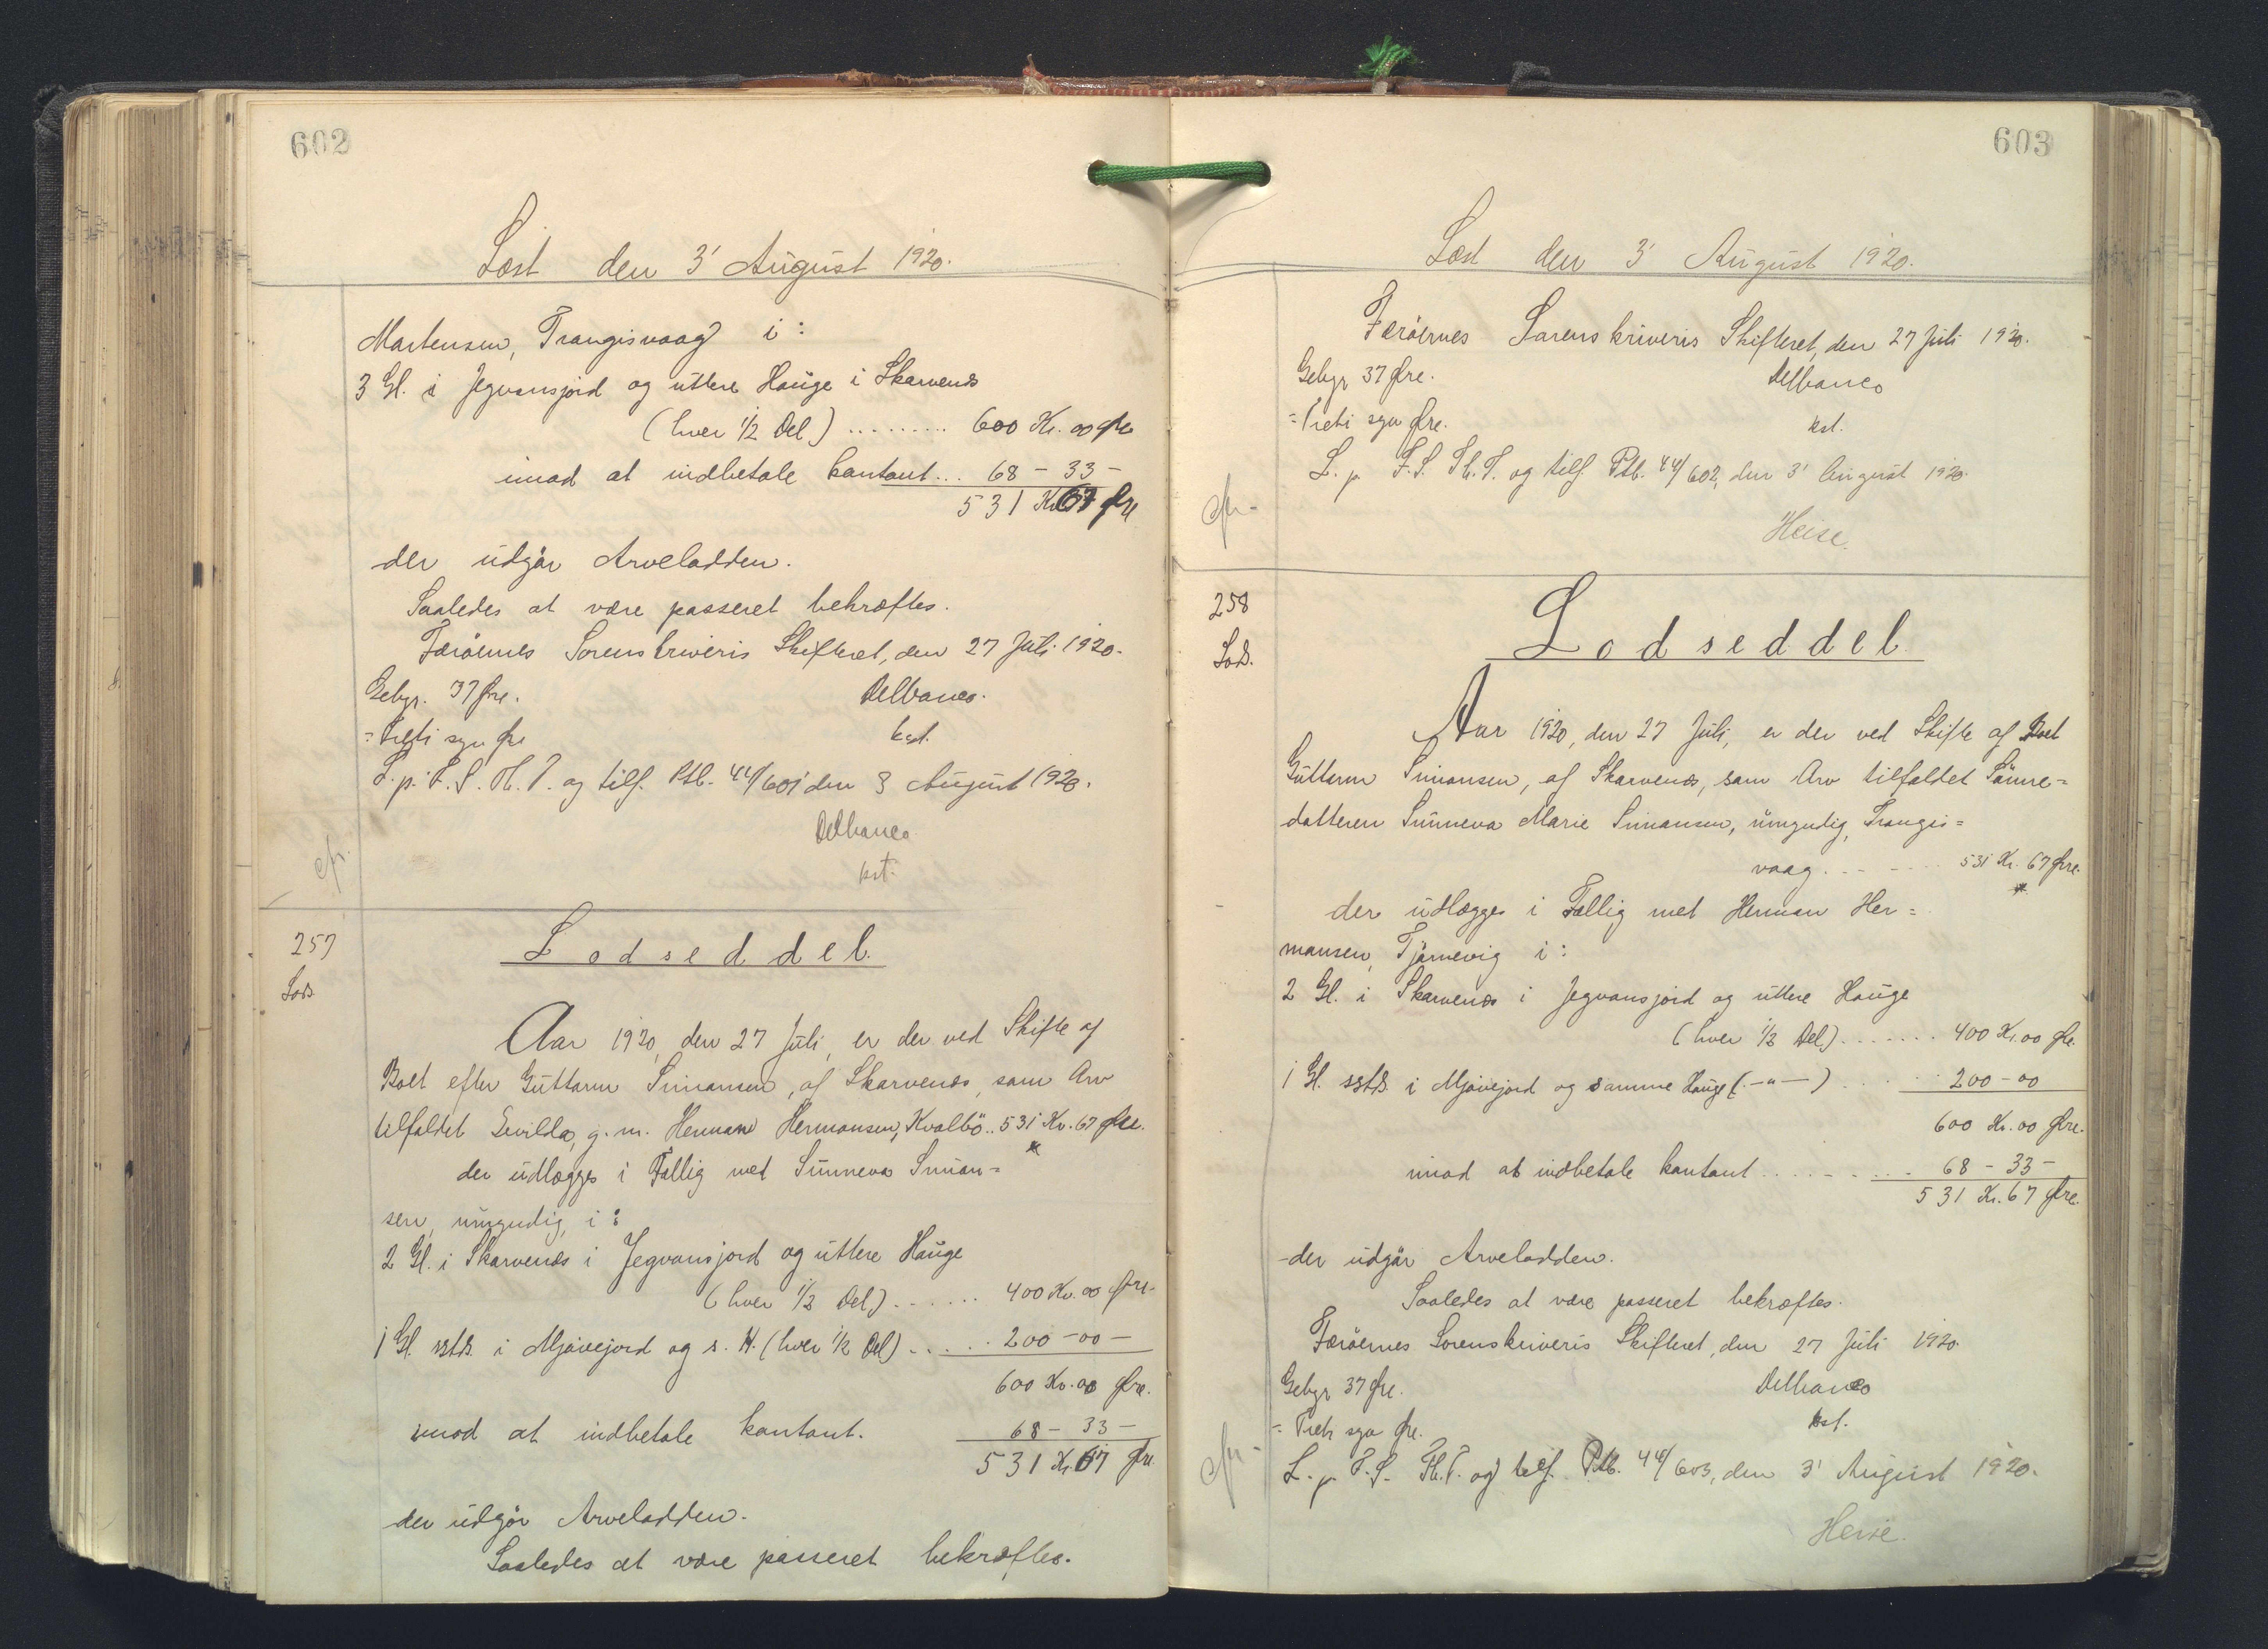 602
Læst den 3' August 1920.
Martensen, Trangisvaag i:
3 Gl. i Jegvansjord og uttere Hauge i Skarvenæs
(hver 1/2 Del) ......... 600 Kr. 00 Øre
imod at indbetale kontant... 68 - 33 -
531 Kr. 67 Øre
der udgör Arvelodden.
Saaledes at være passeret bekræftes.
Færöernes Sorenskriveris Skifteret, den 27 Juli 1920.
Gebyr. 37 Øre.
Delbanco.
= Treti syv Øre
kst.
L. p. F. S. Th. T. og tilf. Ptb. 44/601 den 3 August 1920.
Delbanco
kst.
cfr.
257
Lods.
Lodseddel.
Aar 1920, den 27 Juli, er der ved Skifte af
Boet efter Guttorm Simonsen, af Skarvenæs, som Arv
tilfaldet Sevilda, g. m. Herman Hermansen, Kvalbö.. 531 Kr. 67 Øre.
der udlægges i Fællig met Sunneva Simon=
sen, umyndig, i:
2 Gl. i Skarvenæs i Jegvansjord og uttere Hauge
(hver 1/2 Del) ...... 400 Kr. 00 Øre.
1 Gl. sstds. i Mjávejord og s. H. (hver 1/2 Del) ..... 200 - 00 -
600 Kr. 00 Øre.
imod at indbetale kontant. 68 - 33 -
531 Kr. 67 Øre
der udgör Arvelodden.
Saaledes at være passeret bekræftes.
603
Læst den 3' August 1920.
Færöernes Sorenskriveris Skifteret, den 27 Juli 1920.
Gebyr 37 Øre.
Delbanco
= Treti syv Øre.
kst.
L. p. F. S. Th. T. og tilf Ptb. 44/602, den 3' August 1920.
cfr.
Heise.
258
Lods.
Lodseddel.
Aar 1920, den 27 Juli, er der ved Skifte af Boet
Guttorm Simonsen, af Skarvenæs, som Arv tilfaldet Sönne=
datteren Sunneva Marie Simonsen, umyndig, Trangis=
vaag....... 531 Kr. 67 Øre.
der udlægges i Fællig met Herman Her=
mansen, Tjörnevig i:
2 Gl. i Skarvenæs i Jegvansjord og uttere Hauge
(hver 1/2 Del) ....... 400 Kr. 00 Øre.
1 Gl. sstds. i Mjávejord og samme Hauge (-"-) ..... 200 - 00
600 Kr. 00 Øre.
imod at indbetale kontant ....... 68 - 33 -
531 Kr. 67 Øre.
der udgör Arvelodden.
Saaledes at være passeret bekræftes.
Færöernes Sorenskriveris Skifteret, den 27 Juli 1920.
Gebyr 37 Øre.
Delbanco
= Treti syv Øre.
kst.
L. p. F. S. Th. T. og tilf. Ptb. 44/603, den 3' August 1920.
cfr.
Heise.